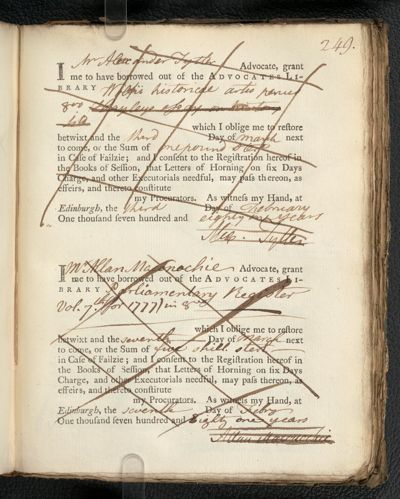 249.
I Mr Alexander Tytler Advocate, grant
me to have borrowed out of the ADVOCATES LI-
BRARY historical
8vo
which I oblige me to restore
betwixt and the third Day of March next
to come, or the Sum of one pound sterl
in Case of Failzie; and I consent to the Registration hereof in
the Books of Session, that Letters of Horning on six Days
Charge, and other Executorials needful, may pass thereon, as
effeirs, and thereto constitute
my Procurators. As witness my Hand, at
Edinburgh, the third Day of February
One thousand seven hundred and eighty one years
Alexr. Tytler
I Mr Allan Maconochie Advocate, grant
me to have borrowed out of the ADVOCATES LI-
BRARY Parliamentary Register
Vol. 7th (for 1777) in 8vo
which I oblige me to restore
betwixt and the seventh Day of March next
to come, or the Sum of five shill sterl
in Case of Failzie; and I consent to the Registration hereof in
the Books of Session, that Letters of Horning on six Days
Charge, and other Executorials needful, may pass thereon, as
effeirs, and thereto constitute
my Procurators. As witness my Hand, at
Edinburgh, the seventh Day of Febry
One thousand seven hundred and Eighty one years
Allan Maconochie